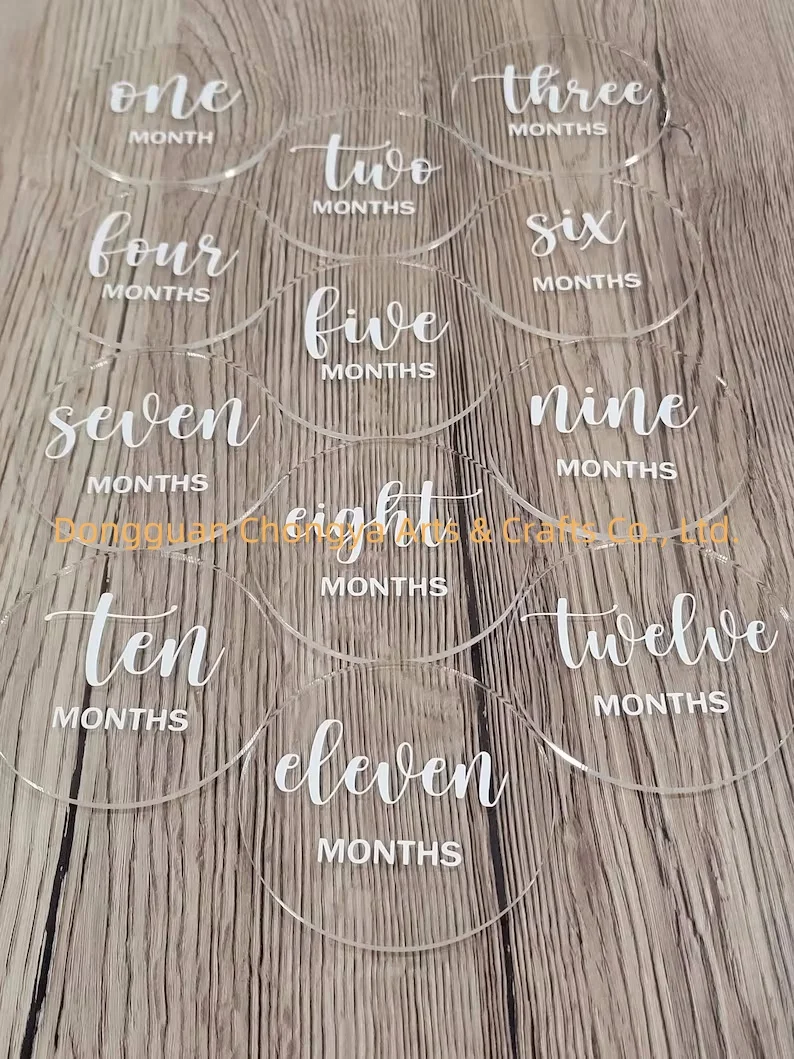 one
MONTH
two
MONTHS
three
MONTHS
four
MONTHS
five
MONTHS
six
MONTHS
seven
MONTHS
eight
MONTHS
nine
MONTHS
Dongguan Chongya Arts & Crafts Co., Ltd.
ten
MONTHS
eleven
MONTHS
twelve
MONTHS